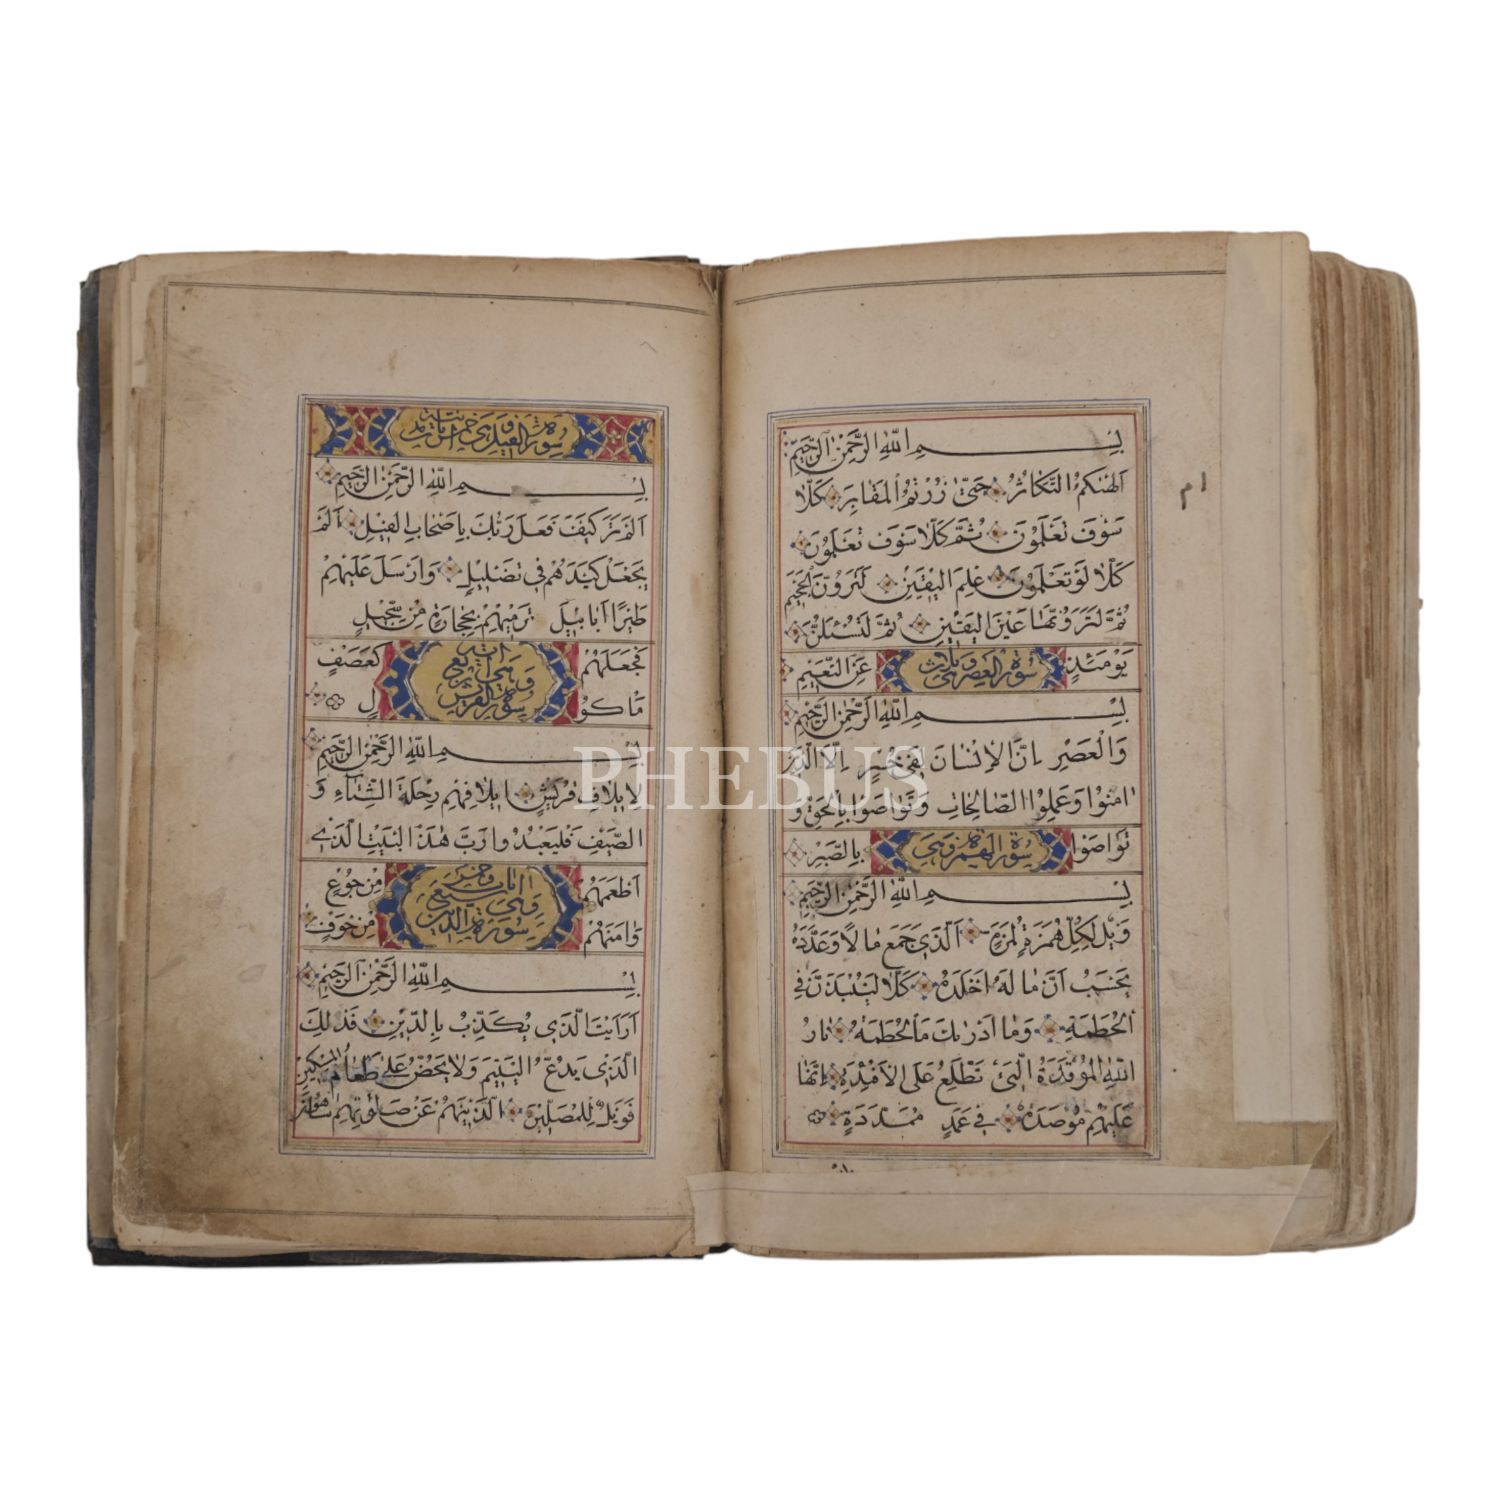 بِسْمِ اللّٰهِ الرَّحْمٰنِ الرَّحِيمِ
اَلْهٰىكُمُ التَّكَاثُرُ حَتّٰى زُرْتُمُ الْمَقَابِرَ كَلَّا
سَوْفَ تَعْلَمُونَ ثُمَّ كَلَّا سَوْفَ تَعْلَمُونَ
كَلَّا لَوْ تَعْلَمُونَ عِلْمَ الْيَقِينِ لَتَرَوُنَّ الْجَحِيمَ
ثُمَّ لَتَرَوُنَّهَا عَيْنَ الْيَقِينِ ثُمَّ لَتُسْئَلُنَّ
يَوْمَئِذٍ سورة العصر وهى ثلاث عَنِ النَّعِيمِ
بِسْمِ اللّٰهِ الرَّحْمٰنِ الرَّحِيمِ
وَالْعَصْرِ اِنَّ الْاِنْسَانَ لَفِى خُسْرٍ اِلَّا الَّذِينَ
اٰمَنُوا وَعَمِلُوا الصَّالِحَاتِ وَتَوَاصَوْا بِالْحَقِّ وَ
تَوَاصَوْا سورة الهمزة وهى بِالصَّبْرِ
بِسْمِ اللّٰهِ الرَّحْمٰنِ الرَّحِيمِ
وَيْلٌ لِكُلِّ هُمَزَةٍ لُمَزَةٍ اَلَّذِى جَمَعَ مَالًا وَعَدَّدَهُ
يَحْسَبُ اَنَّ مَالَهُ اَخْلَدَهُ كَلَّا لَيُنْبَذَنَّ فِى
الْحُطَمَةِ وَمَا اَدْرٰىكَ مَا الْحُطَمَةُ نَارُ
اللّٰهِ الْمُوقَدَةُ الَّتِى تَطَّلِعُ عَلَى الْاَفْئِدَةِ اِنَّهَا
عَلَيْهِمْ مُؤْصَدَةٌ فِى عَمَدٍ مُمَدَّدَةٍ
سورة الفيل وهى خمس ايات
بِسْمِ اللّٰهِ الرَّحْمٰنِ الرَّحِيمِ
اَلَمْ تَرَ كَيْفَ فَعَلَ رَبُّكَ بِاَصْحَابِ الْفِيلِ اَلَمْ
يَجْعَلْ كَيْدَهُمْ فِى تَضْلِيلٍ وَاَرْسَلَ عَلَيْهِمْ
طَيْرًا اَبَابِيلَ تَرْمِيهِمْ بِحِجَارَةٍ مِنْ سِجِّيلٍ
فَجَعَلَهُمْ كَعَصْفٍ
مَاْكُولٍ
سورة القريش وهى اربع اية
بِسْمِ اللّٰهِ الرَّحْمٰنِ الرَّحِيمِ
لِاِيلَافِ قُرَيْشٍ اِيلَافِهِمْ رِحْلَةَ الشِّتَاءِ وَ
الصَّيْفِ فَلْيَعْبُدُوا رَبَّ هٰذَا الْبَيْتِ الَّذِى
اَطْعَمَهُمْ مِنْ جُوعٍ
وَاٰمَنَهُمْ مِنْ خَوْفٍ
سورة الدين وهى سبع ايات
بِسْمِ اللّٰهِ الرَّحْمٰنِ الرَّحِيمِ
اَرَاَيْتَ الَّذِى يُكَذِّبُ بِالدِّينِ فَذٰلِكَ
الَّذِى يَدُعُّ الْيَتِيمَ وَلَا يَحُضُّ عَلٰى طَعَامِ الْمِسْكِينِ
فَوَيْلٌ لِلْمُصَلِّينَ الَّذِينَ هُمْ عَنْ صَلٰوتِهِمْ سَاهُونَ
PHEBUS